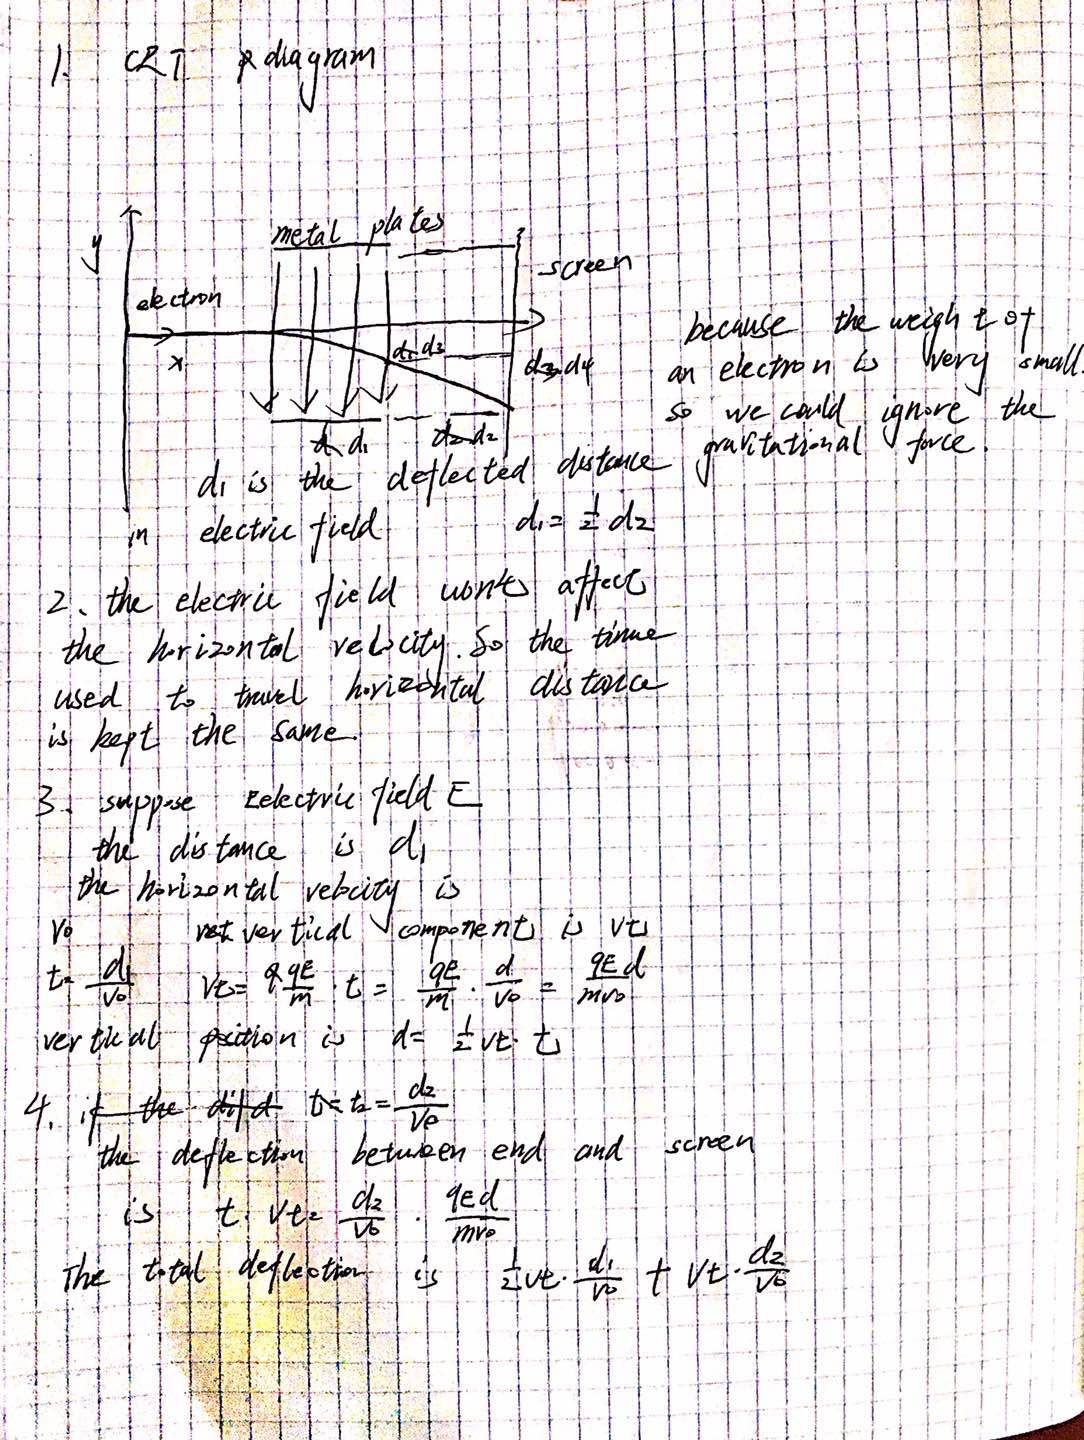 1. CRT diagram
y
metal plates
screen
electron
x
d3
d4
d1
d2
because the weight of
an electron is very small.
so we could ignore the
gravitational force.
d1 is the deflected distance
in electric field d1 = 1/2 d2
2、the electric field won't affect
the horizontal velocity. So the time
used to travel horizontal distance
is kept the same.
3. suppose electric field E
the distance is d1
the horizontal velocity is
V0 vertical component is Vt
t = d1/V0 Vt = qE/m · t = qE/m · d/V0 = qEd/mv0
vertical position is d = 1/2 Vt · t
4. if the t = t2 = d2/V0
the deflection between end and screen
is t · Vt = d2/V0 · qEd/mv0
The total deflection is 1/2 Vt · d1/V0 + Vt · d2/V0